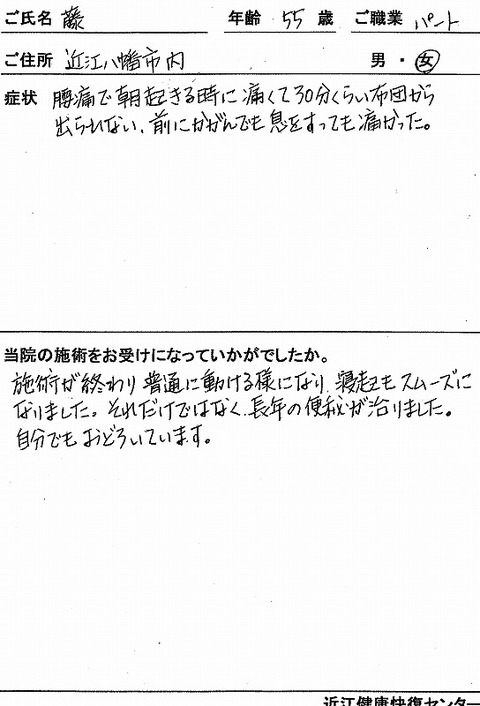 ご氏名 藤 年齢 55 歳 ご職業 パート
ご住所 近江八幡市内 男・女
症状 腰痛で朝起きる時に痛くて30分くらい布団から
出られない、前にかがんでも息をすっても痛かった。
当院の施術をお受けになっていかがでしたか。
施術が終わり普通に動ける様になり、寝起もスムーズに
なりました。それだけではなく、長年の便秘が治りました。
自分でもおどろいています。
近江健康快復センター